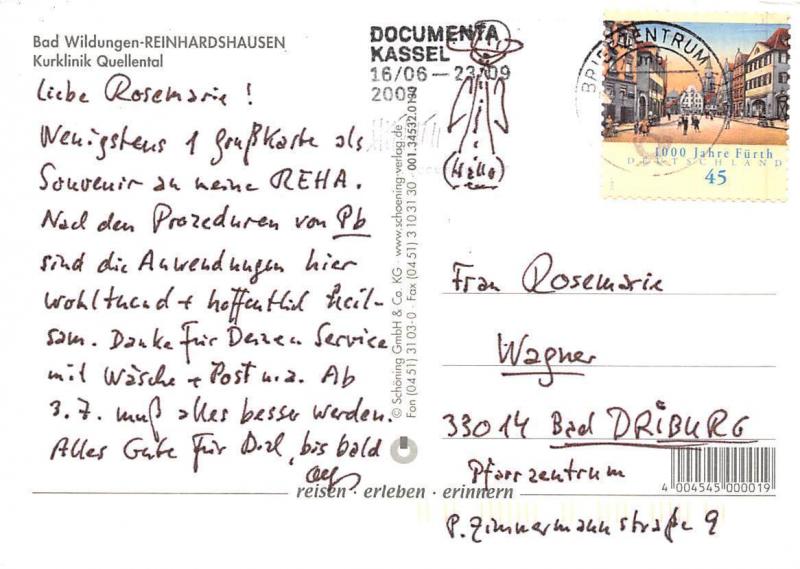 Bad Wildungen-REINHARDSHAUSEN
Kurklinik Quellental
Liebe Rosemarie!
Wenigstens 1 Grußkarte als
Souvenir an meine REHA.
Nach den Prozeduren von Pb
sind die Anwendungen hier
wohltuend + hoffentlich heil-
sam. Danke für Deinen Service
mit Wäsche + Post u.a. Ab
3.7. muß alles besser werden.
Alles Gute für Dich, bis bald
DOCUMENTA
KASSEL
16/06 – 23/09
Hallo
BRIEFZENTRUM
1000 Jahre Fürth
DEUTSCHLAND
45
© Schöning GmbH & Co. KG · www.schoening-verlag.de
Fon (04 51) 31 03-0 · Fax (04 51) 3 10 31 30 · 001.34532.01
Frau Rosemarie
Wagner
33014 Bad DRIBURG
Pfarrzentrum
P. Zimmermannstraße 9
4 004545 000019
reisen · erleben · erinnern